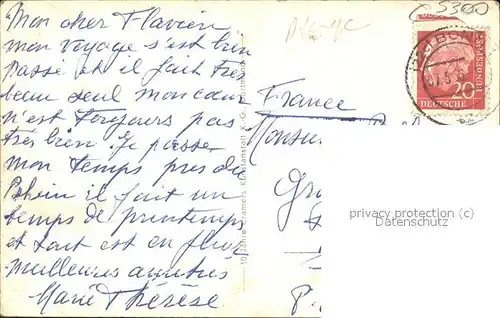 Mon cher Flavien
mon voyage s'est bien
passé et il fait très
beau seul mon cœur
n'est toujours pas
très bien. Je passe
mon temps près du
Rhein il fait un
temps de printemps
et tout est en fleur
meilleures amitiés
Marie Thérèse
50 Jahre Cramers Kunstanstalt K.-G. Dortmund
5300
20
DEUTSCHE
BUNDESPOST
France
Monsieu
Gra
privacy protection (c)
Datenschutz